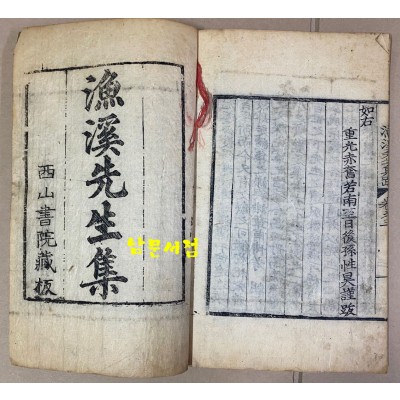 漁溪先生集
西山書院藏板
남문서점
如右
重光赤奮若南至日後孫性昊謹跋
漁溪先生集